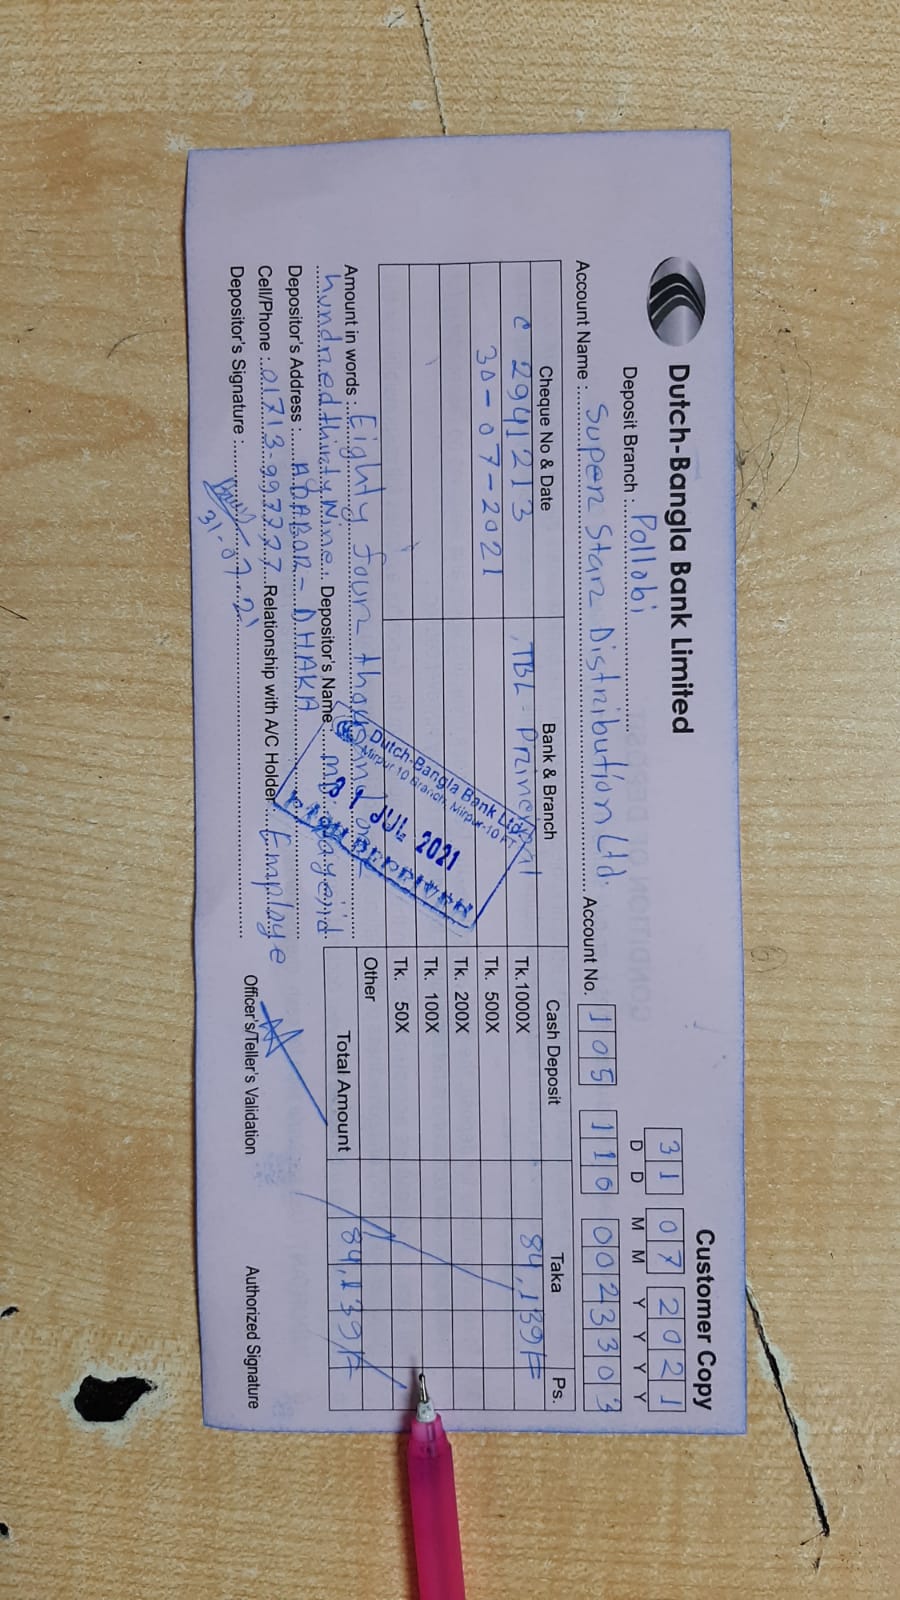 Dutch-Bangla Bank Limited
Customer Copy
Deposit Branch : Pollobi
31 07 2021
D D M M Y Y Y Y
Account Name : Super Star Distribution Ltd. Account No. 105 110 0023303
Cheque No & Date Bank & Branch Cash Deposit Taka Ps.
C 2941213 TBL- Tk.1000X 84,139/=
30-07-2021 Tk. 500X
Tk. 200X
Tk. 100X
Tk. 50X
Other
Total Amount 84,139/=
Amount in words : Eighty four thousand one
hundred thirty Nine Depositor's Name MD. Bayejid
Depositor's Address : ADABOR- DHAKA
Cell/Phone : 01713-997777 Relationship with A/C Holder : Employe
Depositor's Signature :
31-07-21
Officer's/Teller's Validation
Authorized Signature
Dutch-Bangla Bank Ltd.
Mirpur 10 Branch, Mirpur-10
31 JUL 2021